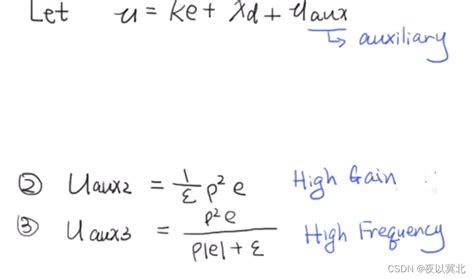 Let u = ke + ẋd + uaux
↳ auxiliary
② uaux2 = 1/ε ρ² e High Gain
③ uaux3 = ρ²e / (ρ|e| + ε) High Frequency
CSDN @夜以冀北